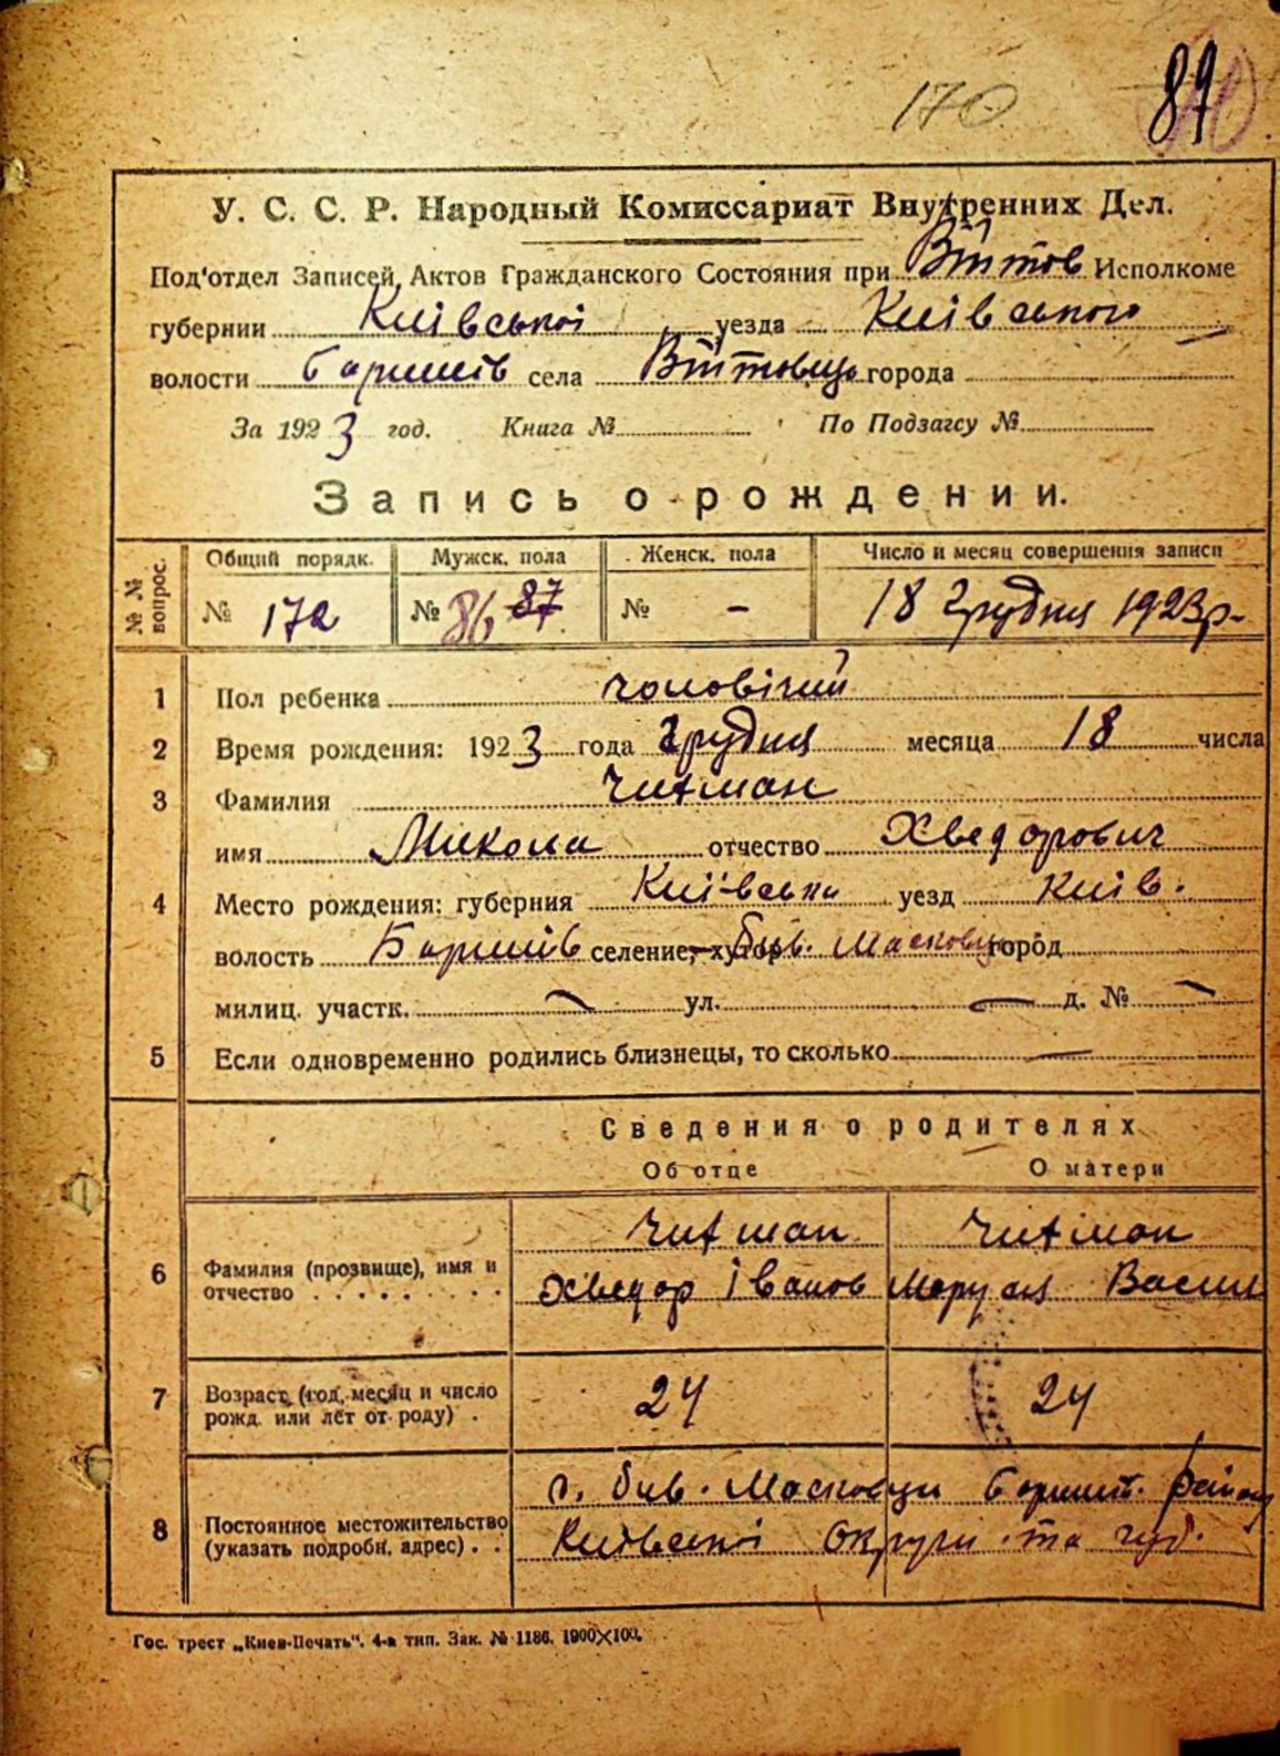 170 89
У. С. С. Р. Народный Комиссариат Внутренних Дел.
Под'отдел Записей Актов Гражданского Состояния при Війтов Исполкоме
губернии Київської уезда Київського
волости Баришів села Війтовець города
За 1923 год. Книга № По Подзагсу №
Запись о рождении.
№ № вопрос. Общий порядк. Мужск. пола Женск. пола Число и месяц совершения записи
№ 172 № 86 87 № — 18 Грудня 1923р.
1 Пол ребенка чоловічий
2 Время рождения: 1923 года Грудня месяца 18 числа
3 Фамилия
имя Микола отчество Хведорович
4 Место рождения: губерния Київська уезд Київ.
волость Баришів селение, хутор Бзів. город
милиц. участк. — ул. — д. № —
5 Если одновременно родились близнецы, то сколько —
Сведения о родителях
Об отце О матери
6 Фамилия (прозвище), имя и отчество
Хведор Іванов Маруся Васил
7 Возраст (год, месяц и число рожд. или лет от роду) 24 24
8 Постоянное местожительство (указать подробн. адрес) Бориш. району
Київської Округи та губ.
Гос. трест „Киев-Печать". 4-я тип. Зак. № 1186. 1900X100.